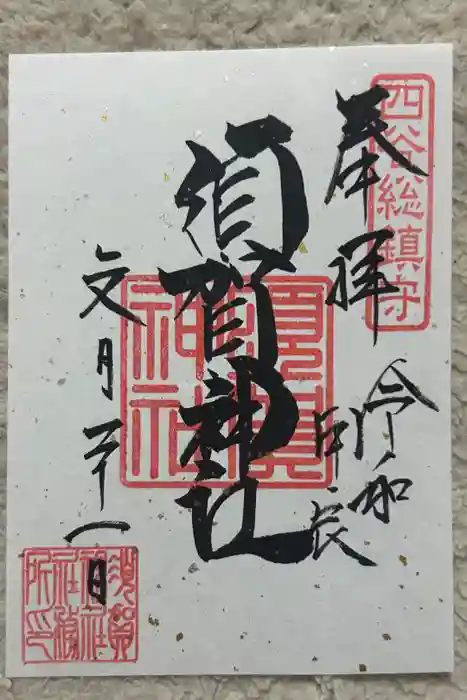 四谷総鎮守
奉拝
令和
甲辰
須賀神社
須賀
神社
文月
一日
須賀
神社
社務
所印